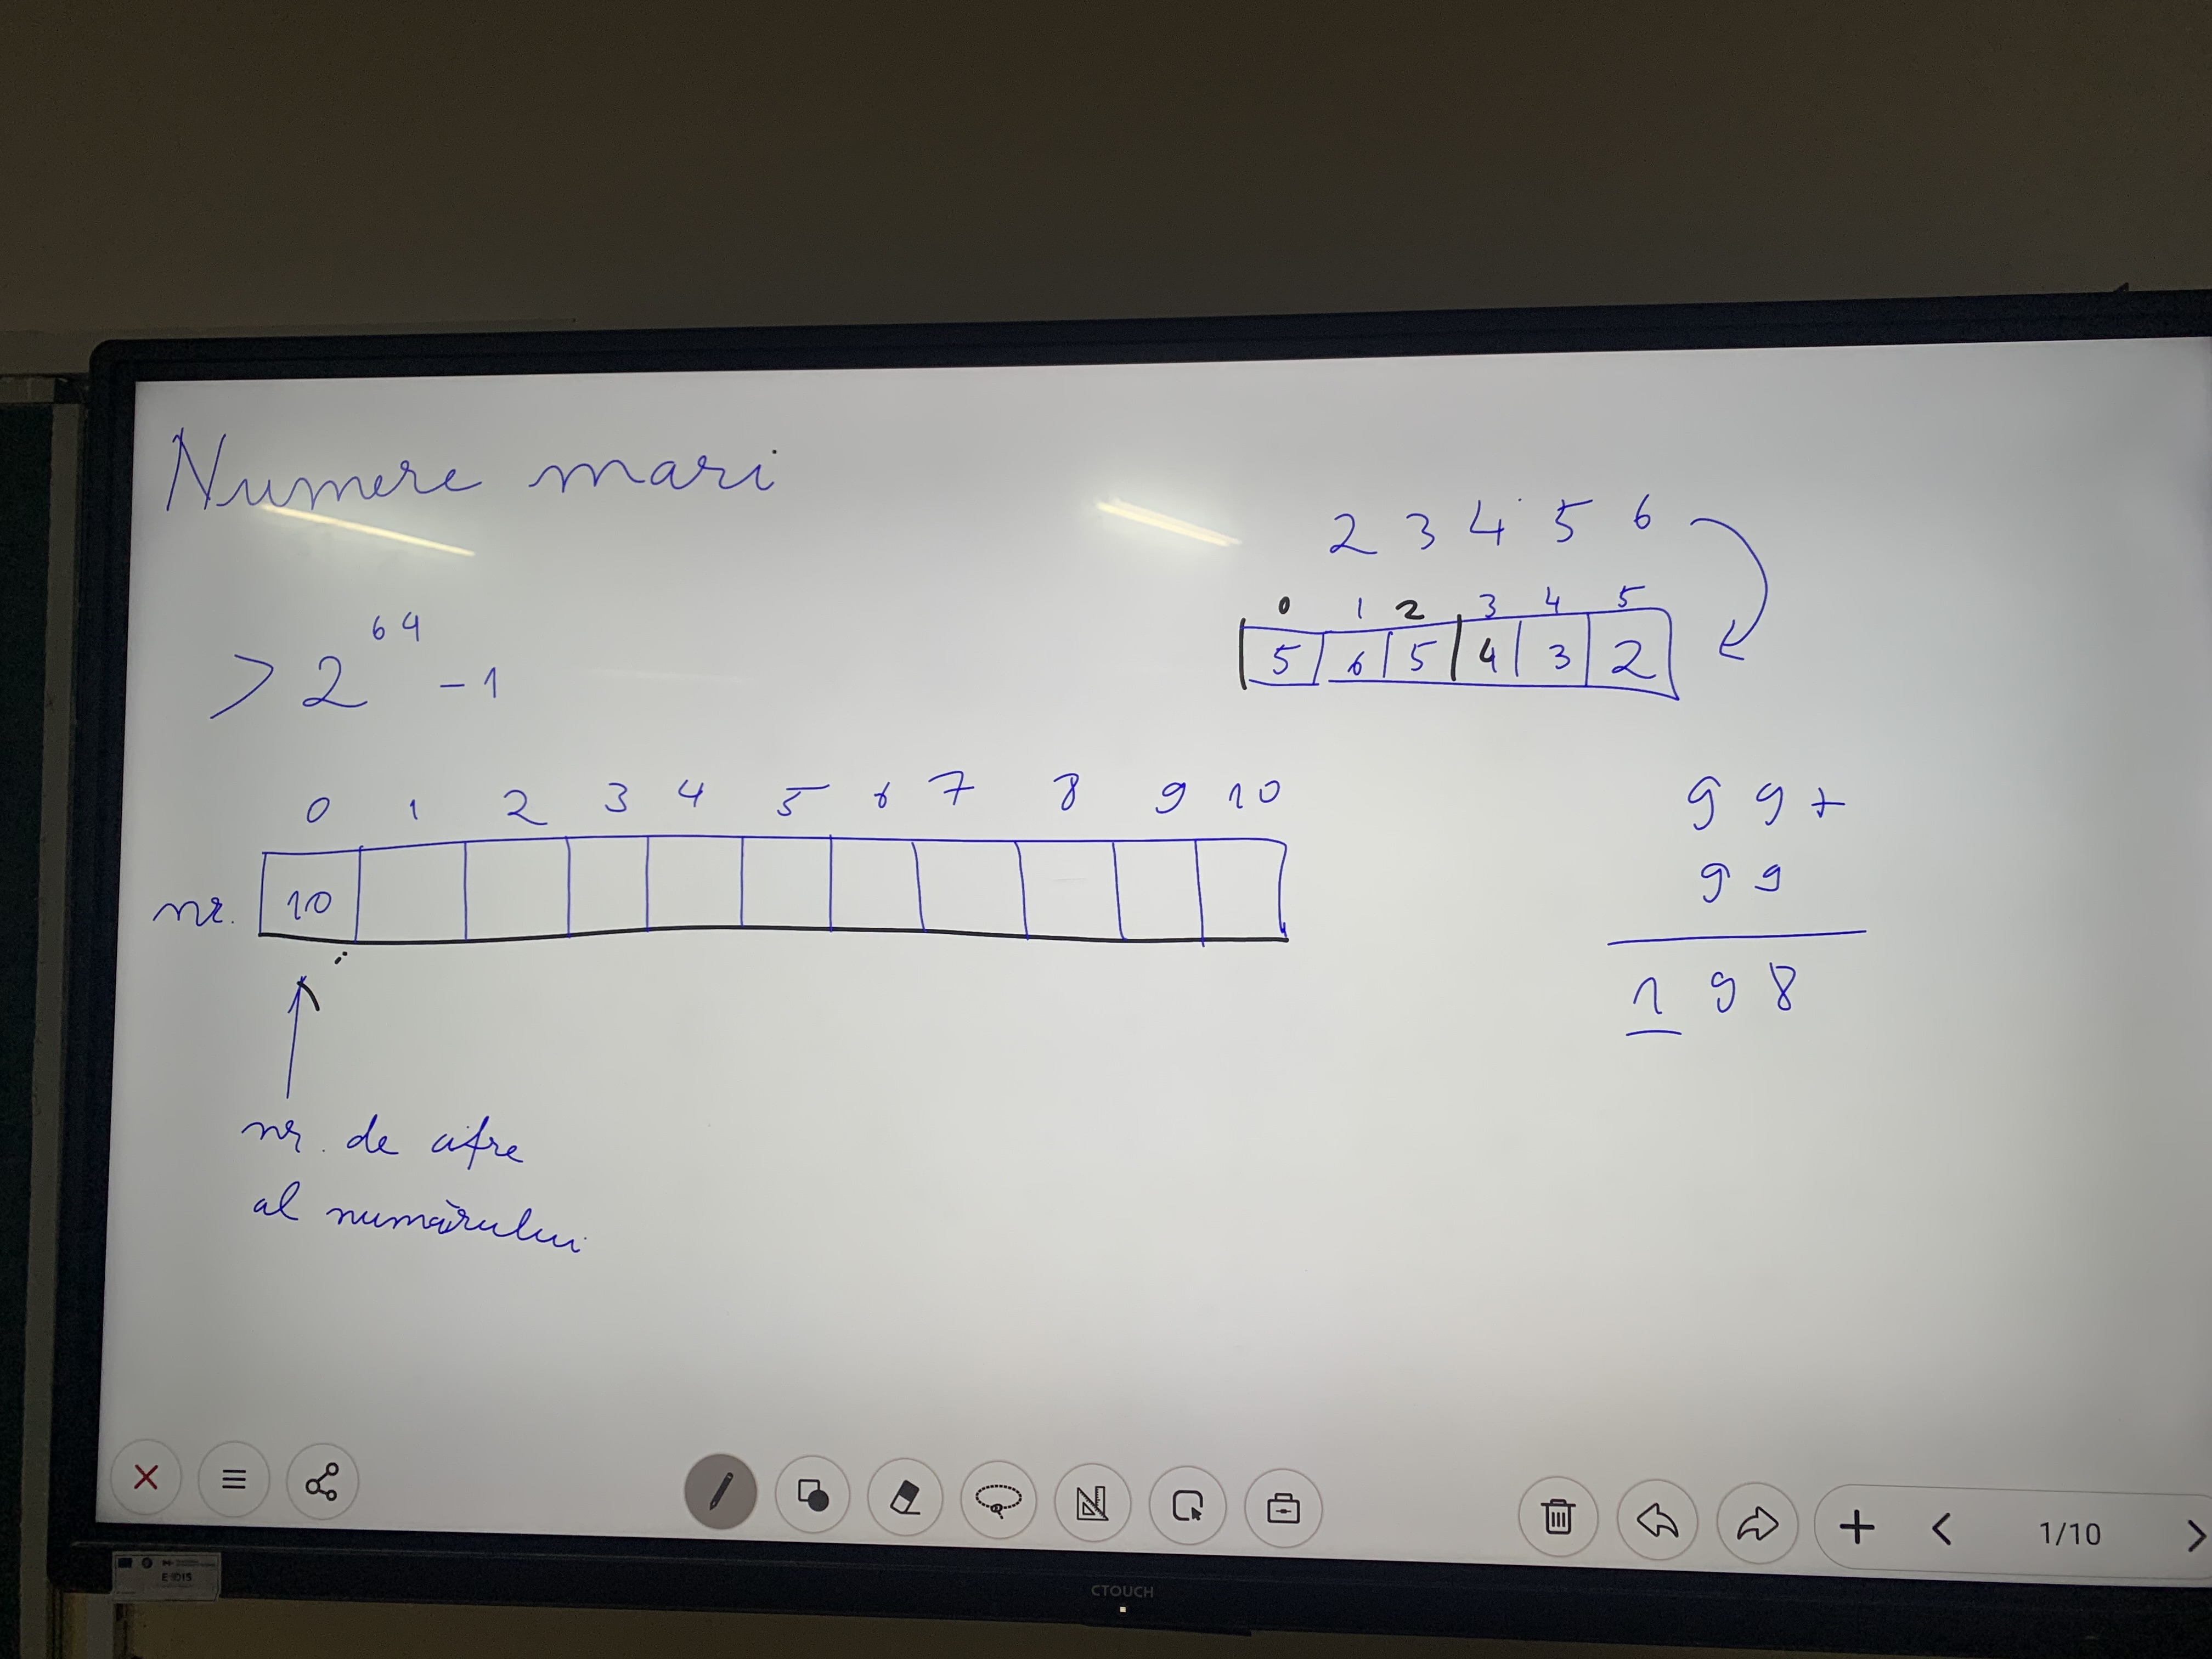 Numere mari
> 2^64 - 1
2 3 4 5 6
0 1 2 3 4 5
5 6 5 4 3 2
0 1 2 3 4 5 6 7 8 9 10
nr. 10
nr. de cifre
al numărului
9 9 +
9 9
1 9 8
1/10
E-DIS
CTOUCH